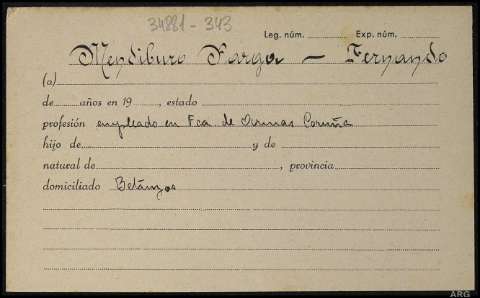 34881-343
Leg. núm. Exp. núm.
Mendiburo Parga — Fernando
(a)
de años en 19 , estado
profesión empleado en Fca de Armas Coruña
hijo de y de
natural de , provincia
domiciliado Betanzos
ARG